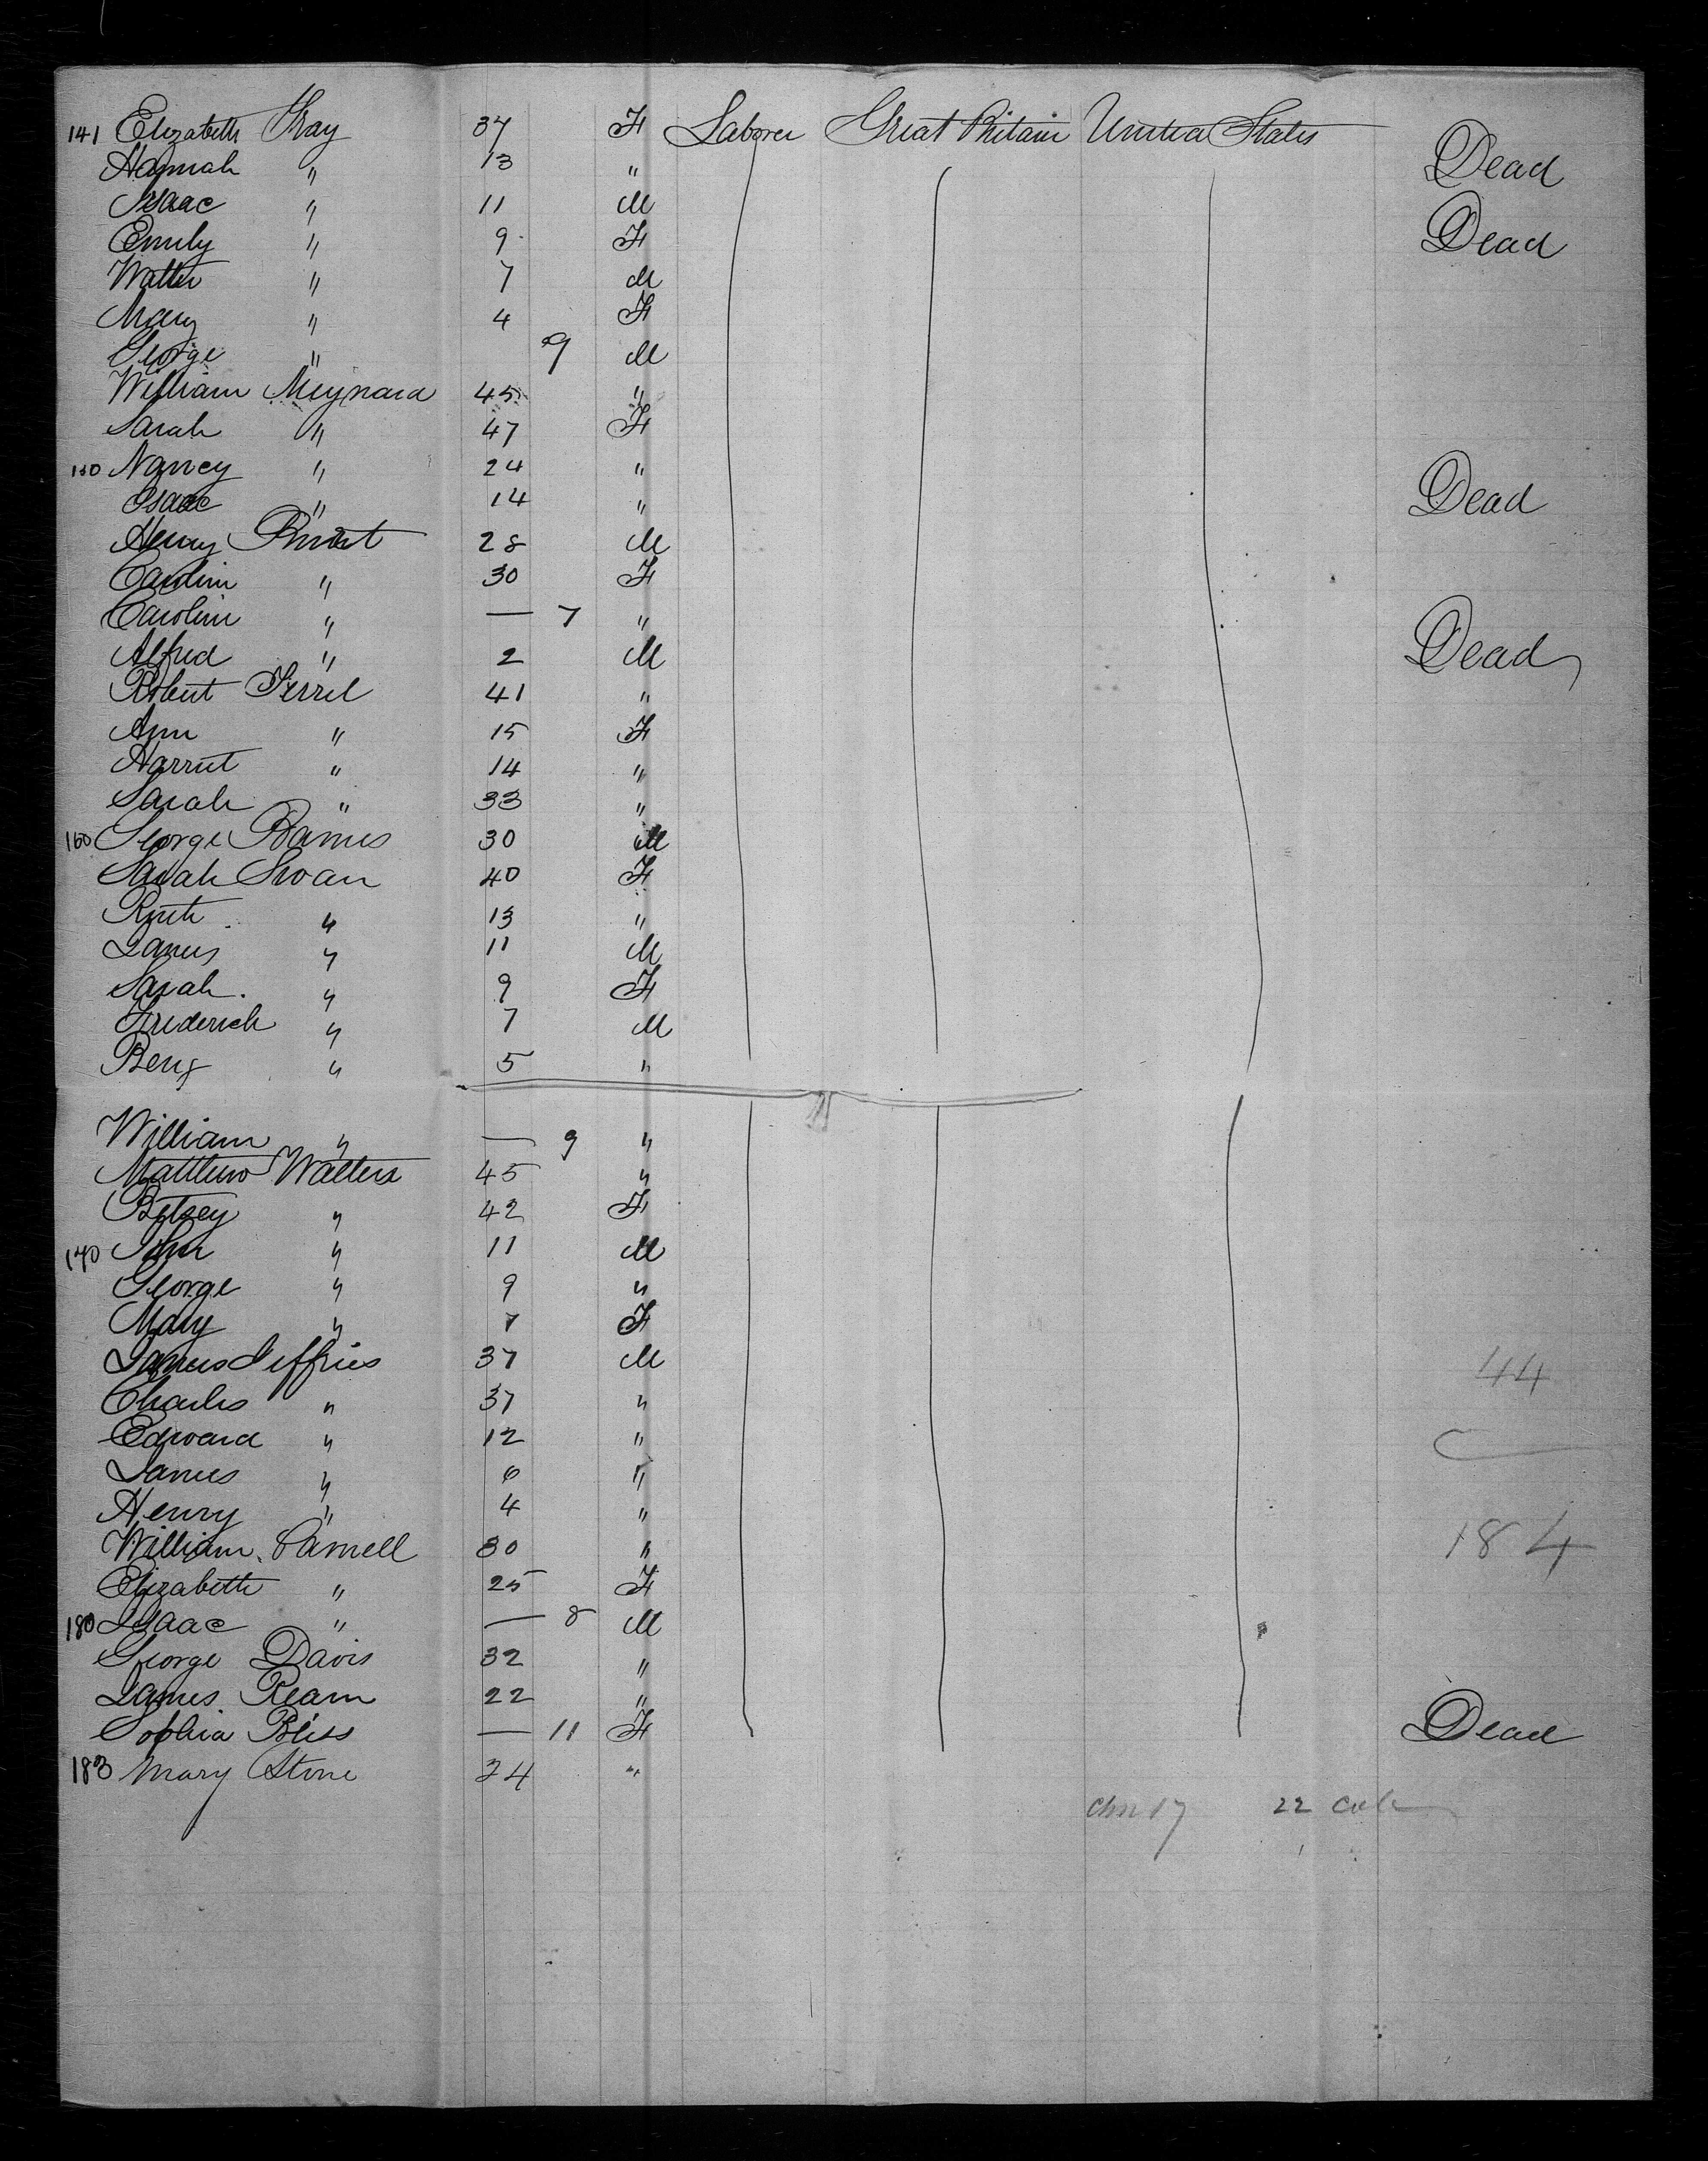 141 Elizabeth Gray 37 F Laborer Great Britain United States
Hannah " 13 " Dead
Isaac " 11 M
Emily " 9 F Dead
Walter " 7 M
Mary " 4 F
George " 9 M
William Meynard 45 "
Sarah " 47 F
150 Nancy " 24 "
Isaac " 14 " Dead
Henry 28 M
Carolin " 30 F
Carolin " — 7 "
Alfred " 2 M Dead
Robert Ferrel 41 "
Ann " 15 F
Harriet " 14 "
Sarah " 33 "
160 George Barnes 30 M
Sarah Swan 40 F
Ruth " 13 "
James " 11 M
Sarah " 9 F
Frederick " 7 M
Benj " 5 "
William " — 9 "
Matthew Walters 45 "
Betsey " 42 F
170 John " 11 M
George " 9 "
Mary " 7 F
James Jeffries 37 M 44
Charles " 37 "
Edward " 12 "
James " 6 "
Henry " 4 "
William Carnell 30 " 184
Elizabeth " 25 F
180 Isaac " — 8 M
George Davis 32 "
James Ream 22 "
Sophia Bliss — 11 F Dead
183 Mary Stone 34 "
Chn 17 22